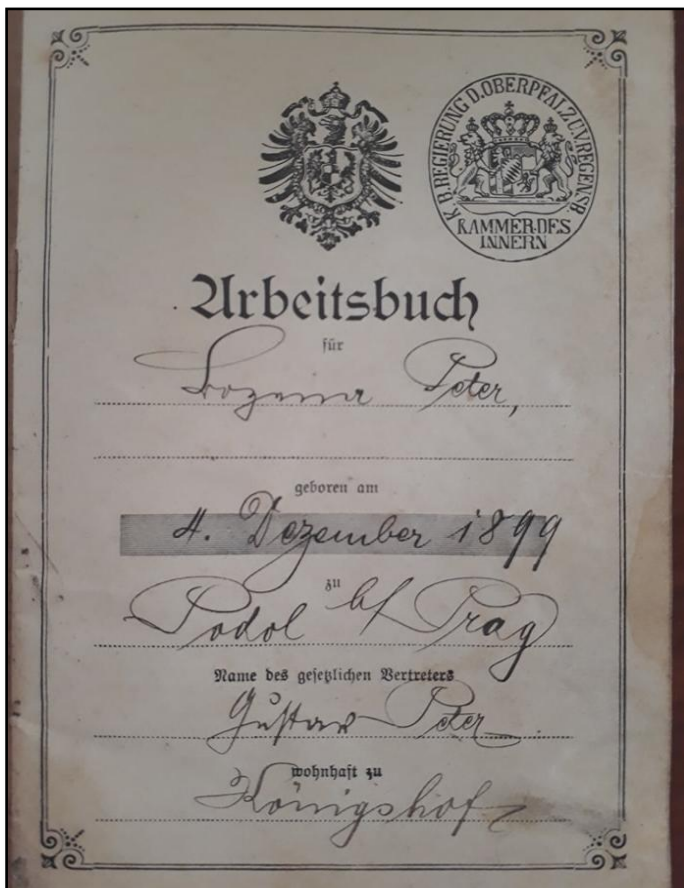 K. B. REGIERUNG D. OBERPFALZ U. V. REGENSB.
KAMMER DES
INNERN
Arbeitsbuch
für
Bozena Peter,
geboren am
4. Dezember 1899
zu
Podol b/ Prag
Name des gesetzlichen Vertreters
Gustav Peter
wohnhaft zu
Königshof